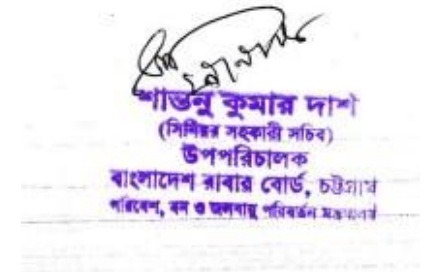 শান্তনু কুমার দাশ
(সিনিয়র সহকারী সচিব)
উপপরিচালক
বাংলাদেশ রাবার বোর্ড, চট্টগ্রাম
পরিবেশ, বন ও জলবায়ু পরিবর্তন মন্ত্রণালয়